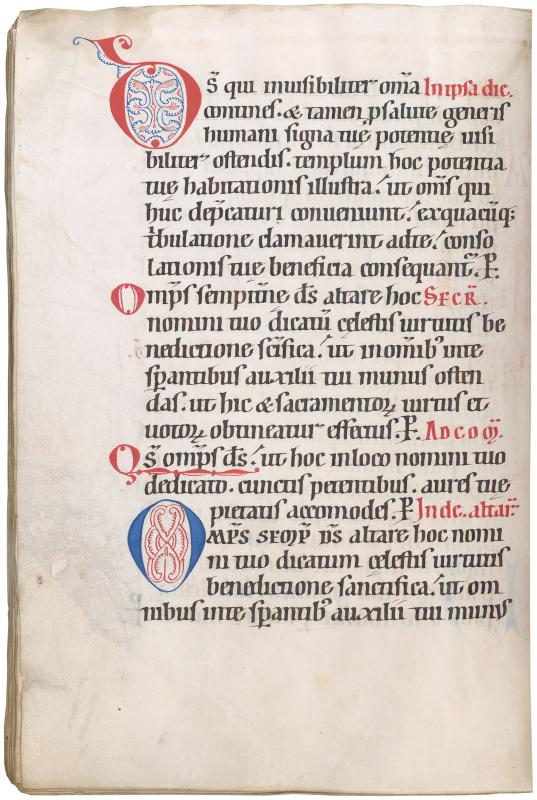 Ds̄ qui inuisibiliter om̄a In ipsa dic.
contines. & tamen ꝓ salute generis
humani signa tuę potentię uisi
biliter ostendis. templum hoc potentia
tuę habitationis illustra. ut om̄s qui
huc dep̄caturi conueniunt. ex quacūq;
t̄bulatione clamauerint ad te. conso
lationis tue beneficia consequant᷑. P.
Omp̄s sempit̄ne ds̄ altare hoc SECR̄.
nomini tuo dicatū cęlestis uirtutis be
nedictione sc̄ifica. ut in om̄ib; in te
sp̄antibus auxilii tui munus osten
das. ut hic & sacramentoꝝ uirtus et
uotoꝝ obtineatur effectus. P. AD COM̄.
Qs̄ omp̄s ds̄. ut hoc in loco nomini tuo
dedicato. cunctis petentibus. aures tue
pietatis accomodes. P. In dc. altar̄.
OMP̄S SEMP̄ DS̄ altare hoc nomi
ni tuo dicatum cęlestis uirtutis
benedictione sanctifica. ut om
nibus in te sp̄antib; auxilii tui munus